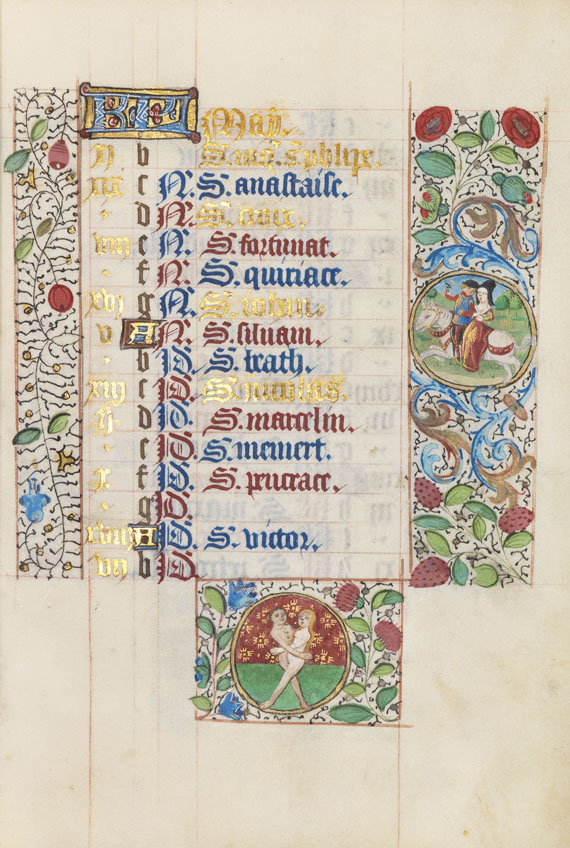 KL May.
ij b S. iaq. s. phlipe.
xix c N. S. anastaise.
d N. S. croix.
viij e N. S. fortunat.
f N. S. quiriace.
xvj g N. S. iohan.
v A N. S. siluain.
b D. S. beath.
xiij c D. S. nicolas.
ij. d D. S. marcelin.
e D. S. memert.
x f D. S. pancrace.
g D.
xviij A D. S. victor.
vij b D.